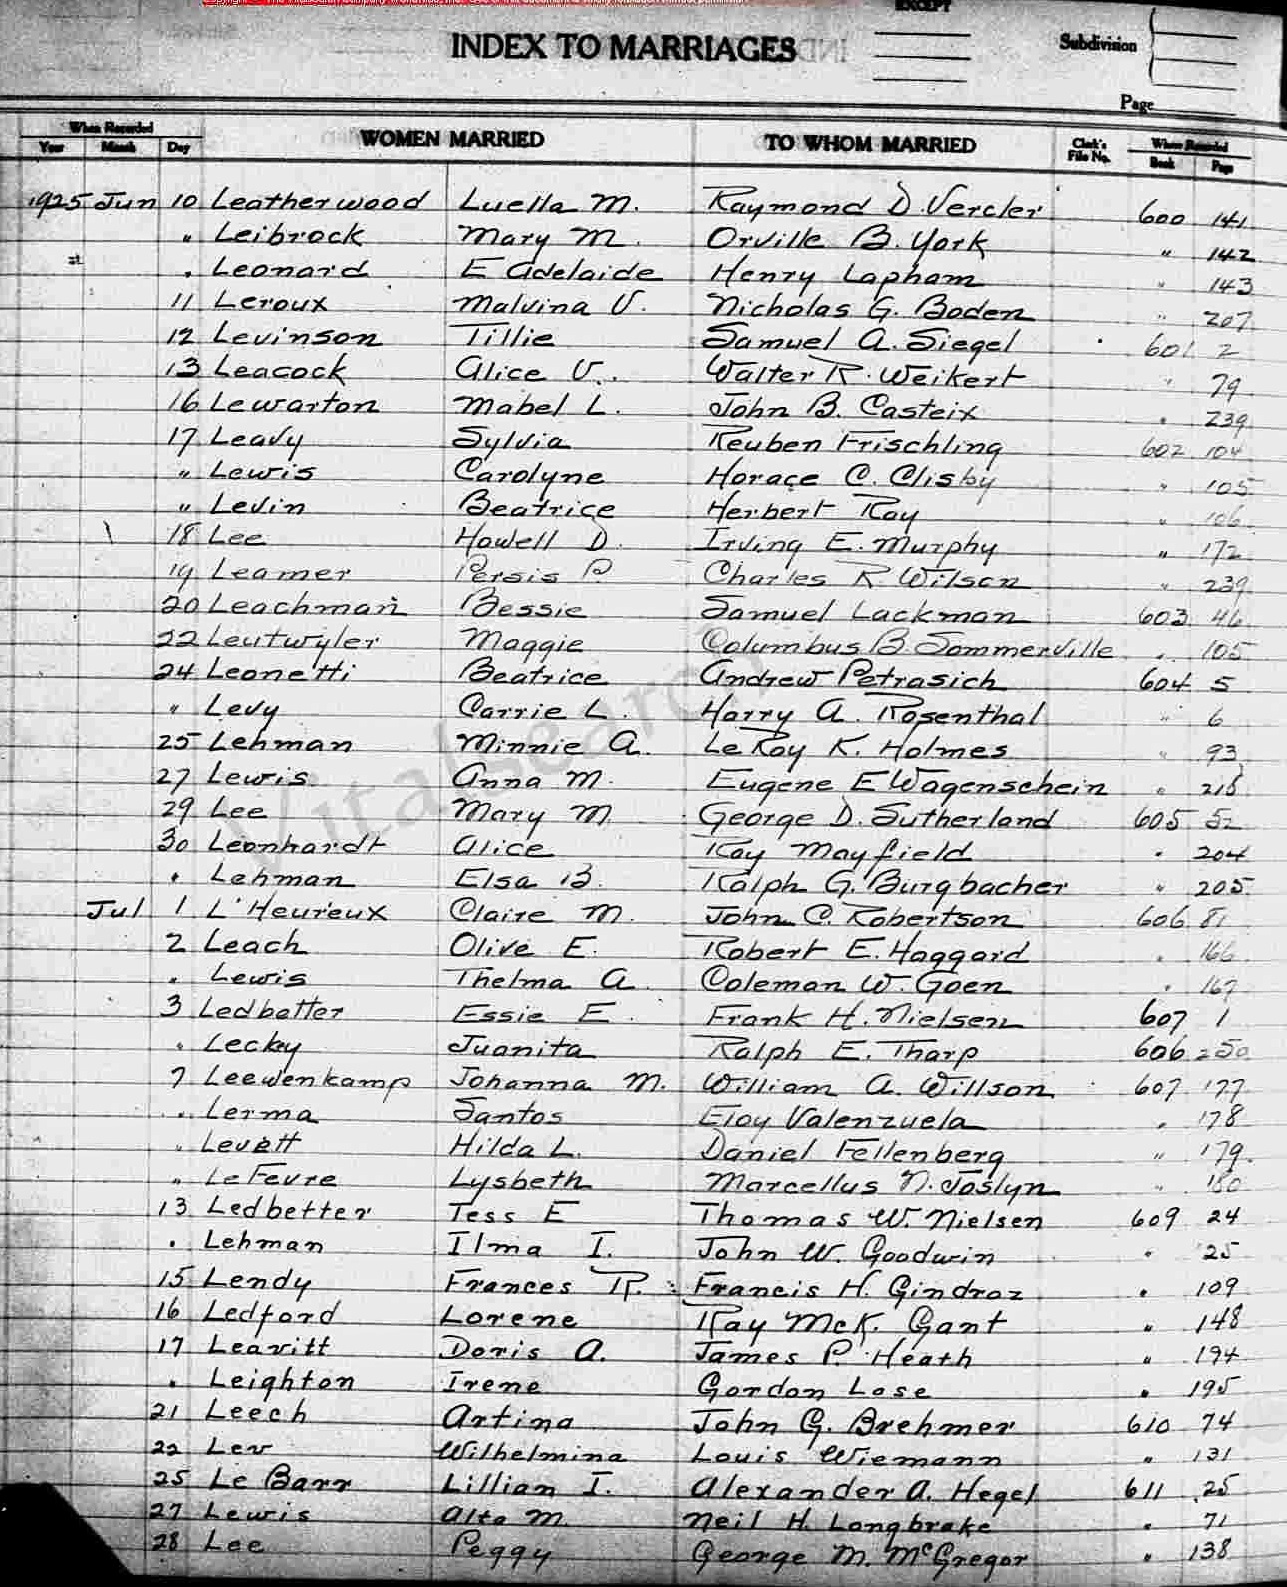 INDEX TO MARRIAGES
EXCEPT
Subdivision
Page
When Recorded
Year Month Day
WOMEN MARRIED
TO WHOM MARRIED
Clerk's File No.
Where Recorded
Book Page
1925 Jun 10 Leatherwood Luella M. Raymond D. Vercler 600 141
" Leibrock Mary M. Orville B. York " 142
. Leonard E Adelaide Henry Lapham " 143
11 Leroux Malvina V. Nicholas G. Boden " 207
12 Levinson Tillie Samuel A. Siegel 601 2
13 Leacock Alice V. Walter R. Weikert " 79
16 Lewarton Mabel L. John B. Casteix " 239
17 Leavy Sylvia Reuben Frischling 602 104
" Lewis Carolyne Horace C. Clisby " 105
" Levin Beatrice Herbert Ray " 106
18 Lee Howell D. Irving E. Murphy " 172
19 Leamer Persis P. Charles R Wilson " 239
20 Leachman Bessie Samuel Lackman 603 46
22 Leutwyler Maggie Columbus B. Sommerville . 105
24 Leonetti Beatrice Andrew Petrasich 604 5
" Levy Carrie L. Harry A. Rosenthal " 6
25 Lehman Minnie A. Le Roy K. Holmes " 93
27 Lewis Anna M. Eugene E Wagenschein "
29 Lee Mary M George D. Sutherland 605 52
30 Leonhardt Alice Ray Mayfield . 204
. Lehman Elsa B. Ralph G. Burgbacher " 205
Jul 1 L'Heureux Claire M. John C. Robertson 606 81
2 Leach Olive E. Robert E. Haggard . 166
. Lewis Thelma A. Coleman W. Goen . 167
3 Ledbetter Essie E. Frank H. Nielsen 607 1
" Lecky Juanita Ralph E. Tharp 606 250
7 Leewenkamp Johanna M. William A. Willson 607 177
. Lerma Santos Eloy Valenzuela . 178
" Levett Hilda L. Daniel Fellenberg " 179
" LeFevre Lysbeth Marcellus N. Joslyn " 180
13 Ledbetter Tess E Thomas W. Nielsen 609 24
. Lehman Ilma I. John W. Goodwin . 25
15 Lendy Frances R. Francis H. Gindroz . 109
16 Ledford Lorene Ray McK. Gant " 148
17 Leavitt Doris A. James P. Heath " 194
. Leighton Irene Gordon Lose . 195
21 Leech Artina John G. Brehmer 610 74
22 Lev Wilhelmina Louis Wiemann " 131
25 Le Barr Lillian I. Alexander A. Hegel 611 25
27 Lewis Alta M. Neil H. Longbrake . 71
28 Lee Peggy George M. McGregor " 138